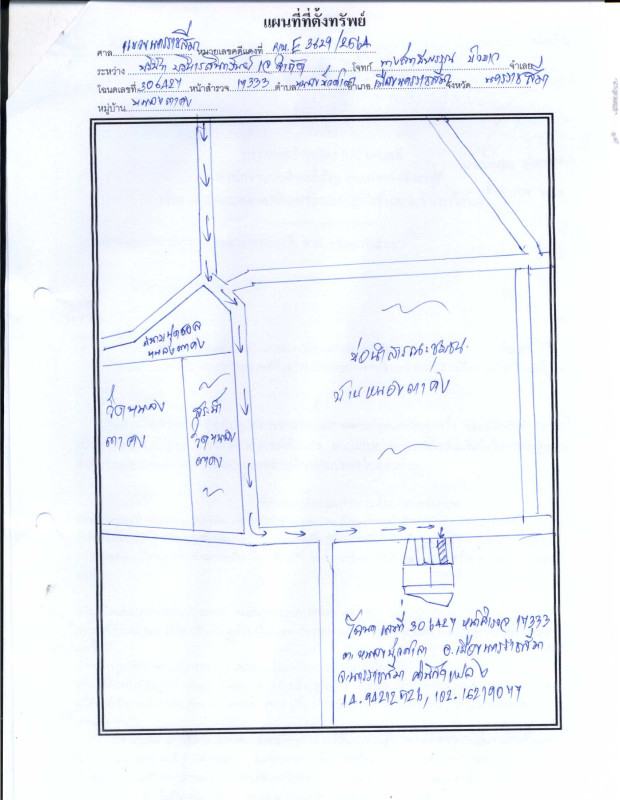 แผนที่ที่ตั้งทรัพย์
ศาล แขวงนครราชสีมา หมายเลขคดีแดงที่ ผบ.E 3629/2564
ระหว่าง บริษัท บริหารสินทรัพย์ จำกัด โจทก์ จำเลย
โฉนดเลขที่ 306427 หน้าสำรวจ 17333 ตำบล อำเภอ เมืองนครราชสีมา จังหวัด นครราชสีมา
หมู่บ้าน หนองตาคง
สนามฟุตบอล
หนองตาคง
วัดหนอง
ตาคง
สระน้ำ
วัดหนอง
ตาคง
บ่อน้ำสาธารณะชุมชน
บ้านหนองตาคง
โฉนดเลขที่ 306427 หน้าสำรวจ 17333
อ.เมืองนครราชสีมา
จ.นครราชสีมา ค่าพิกัดแปลง
14.94212526, 102.16279047